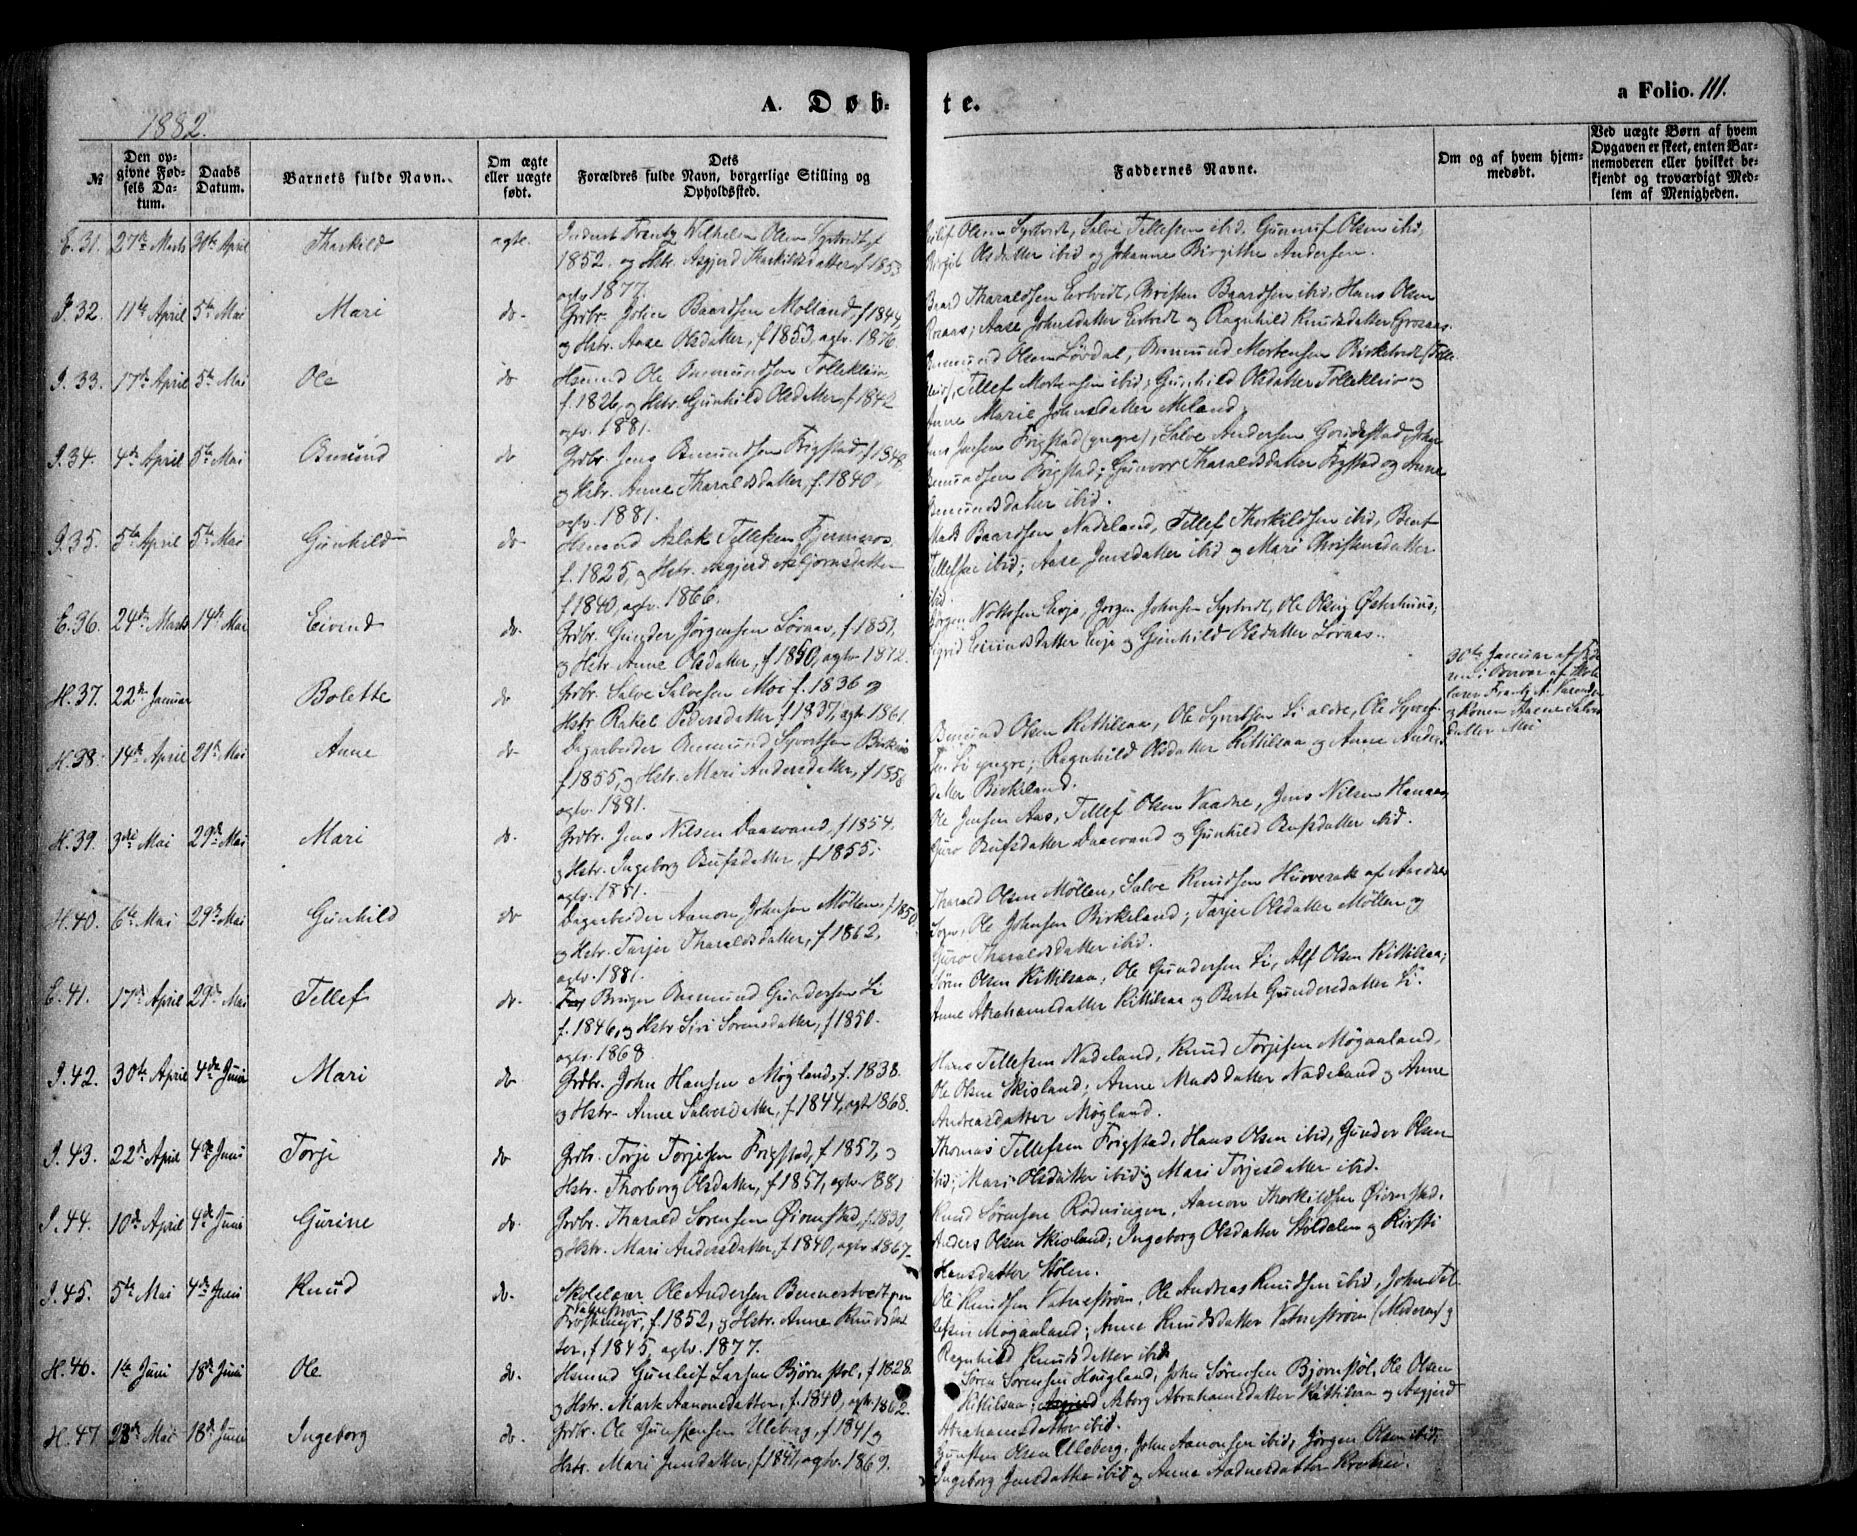 A. Døbte.
a Folio. 111.
1882.
№
Den opgivne Fødsels Datum.
Daabs Datum.
Barnets fulde Navn.
Om ægte eller uægte født.
Dets Forældres fulde Navn, borgerlige Stilling og Opholdssted.
Faddernes Navne.
Om og af hvem hjemmedøbt.
Ved uægte Børn af hvem Opgaven er skeet, enten Barnemoderen eller hvilket bekjendt og troværdigt Medlem af Menigheden.
E. 31. 27de Marts 30te April Tharkild ægte. Inderst Frentz Wilhelm Olsen Syrtvedt, f.
1852. og Hstr. Asgjerd Tharkildsdatter, f. 1853
ægtv 1877.
Olsen Syrtvedt, Salve Tellefsen ibid, Gunuf Olsen ibid,
Birgit Olsdatter ibid og Johanne Birgithe Andersen.
I. 32. 11te April 5te Mai Mari do. Grdbr. John Baardsen Molland, f. 1844,
og Hstr. Aase Olsdatter, f. 1853, ægtv. 1876.
Baard Tharaldsen Ertvedt, Christen Baardsen ibid, Hans Olsen
Rosaas; Aase Johnsdatter Ertvedt og Ragnhild Knudsdatter Grosaas.
I. 33. 17de April 5te Mai Ole do Hsmnd Ole Osmundsen Tolleklein
f. 1826, og Hstr. Gunhild Olsdatter, f. 1842
ægtv. 1881.
Osmund Olsen Løvdal, Osmund Mortensen Birketvedt
Tellef Mortensen ibid; Gunhild Olsdatter Tolleklein og
Anne Marie Johnsdatter Meland.
I. 34. 4de April 5te Mai Osmund do Grdbr. Jens Osmundsen Frigstad, f. 1848.
og Hstr. Anne Tharaldsdatter, f. 1840.
ægtv. 1881.
Jens Jensen Frigstad (yngre), Salve Andersen Goridestad, John
Osmundsen Frigstad; Gunvor Tharaldsdatter Frigstad og Anne
Osmundsdatter ibid.
I. 35. 5te April 5te Mai Gunhild do Hsmnd Aslak Tellefsen Fjermeros
f. 1825, og Hstr. Asgjerd Asbjørnsdatter
f. 1840, ægtv. 1866.
Mads Baardsen Nadeland, Tellef Thorkildsen ibid, Bent
Tellefsen ibid; Aase Jensdatter ibid og Mari Christensdatter
ibid.
E. 36. 24de Marts 14de Mai Eivind do. Grdbr. Gunder Jørgensen Løvaas, f. 1851,
og Hstr. Anne Olsdatter, f. 1850, ægtv 1872.
Jørgen Nottosen Evje, Jørgen Johnsen Syrtvedt, Ole Olsen Østerhuus;
Sigrid Eivindsdatter Evje og Gunhild Olsdatter Løvaas.
H. 37. 22de Januar Bolette do Grdbr. Salve Salvesen Moi f. 1836 og
Hstr. Rakel Pedersdatter f. 1837, ægtv 1861.
30te Januar af
af Skole-
lærer Frantz A.
og Konen Aasne Salves-
datter Moi
H. 38. 14de April 21de Mai Anne do Dagarbeider Osmund Syvertsen
f. 1855, og Hstr. Mari Andersdatter, f. 1858
ægtv. 1881.
Osmund Olsen Kittilsaa, Ole Syvertsen Li ældre, Ole Syvert-
sen Li yngre; Ragnhild Olsdatter Kittilsaa og Anne Anders-
datter Birkeland.
H. 39. 3die Mai 29de Mai Mari do. Grdbr. Jens Nilsen Daasvand, f. 1854.
og Hstr. Ingeborg Bufsdatter, f. 1855;
ægtv. 1881.
Ole Jensen Aas, Tellef Olsen Vaadne, Jens Nilsen Hanaas,
Guro Bufsdatter Daasvand og Gunhild Bufsdatter ibid.
H. 40. 6te Mai 29de Mai Gunhild do Dagarbeider Aanon Johnsen Møllen, f. 1850,
og Hstr. Tarjer Tharaldsdatter, f. 1862,
ægtv. 1881.
Tharald Olsen Møllen, Salve Knudsen af
Sogn, Ole Johnsen Birkeland; Tarjer Olsdatter Møllen og
Guro Tharaldsdatter ibid.
E. 41. 17de April 29de Mai Tellef do. Bruger Osmund Gundersen Li
f. 1846, og Hstr Siri Sørensdatter, f. 1850.
ægtv. 1868.
Søren Olsen Kittilsaa, Ole Gundersen Li, Alf Olsen Kittilsaa;
Anne Abrahamsdatter Kittilsaa og Berte Gundersdatter Li.
I. 42. 30te April 4de Juni Mari do Grdbr. John Hansen Møgland, f. 1838.
og Hstr. Anne Salvesdatter, f. 1844, ægtv 1868.
Hans Tellefsen Nadeland, Knud Torjesen Møgaaland,
Ole Olsen Skisland; Anne Madsdatter Nadeland og Anne
Andreasdatter Møgland.
I. 43. 22de April 4de Juni Torje do Grdbr. Torje Torjesen Frigstad, f. 1857, og
Hstr. Thorborg Olsdatter, f. 1857, ægtv 1881
Thomas Tellefsen Frigstad, Hans Olsen ibid, Gunder Olsen
ibid; Mari Olsdatter ibid og Mari Torjesdatter ibid.
I. 44. 10de April 4de Juni Gurine do. Grdbr. Tharald Sørensen Øvernstad, f. 1830,
og Hstr. Mari Andersdatter, f. 1840, ægtv 1867.
Knud Sørensen Rødningen, Aanon Thorkildsen Øvernstad,
Anders Olsen Skisland; Ingeborg Olsdatter Støldalen og Kirsti
Hansdatter Stølen.
I. 45. 5te Mai 4de Juni Knud do. Skolelærer Ole Andersen Bennestvedt paa
Vatnestrøm
Frøstmyr, f. 1852, og Hstr. Anne Knudsdat-
ter, f. 1845, ægtv. 1877.
Ole Knudsen Vatnestrøm, Ole Andreas Knudsen ibid, John Tel-
lefsen Møgaaland; Anne Knudsdatter Vatnestrøm (Moderen) og
Ragnhild Knudsdatter ibid.
H. 46. 1te Juni 18de Juni Ole do. Hsmnd Gunleif Larsen Bjørnstøl, f. 1828.
og Hstr. Marte Aanonsdatter, f. 1840, ægtv. 1862.
Søren Sørensen Hougland, John Sørensen Bjørnstøl, Ole Olsen
Kittilsaa; Asborg Abrahamsdatter Kittilsaa og Asgjerd
Abrahamsdatter ibid.
H. 47. 28de Mai 18de Juni Ingeborg do. Grdbr. Ole Gunstensen Uleberg, f. 1841 og
Hstr. Mari Jensdatter, f. 1841, ægtv. 1869.
Gunsten Olsen Uleberg, John Aanonsen ibid, Jørgen Olsen ibid;
Ingeborg Jensdatter ibid og Anne Aadnesdatter